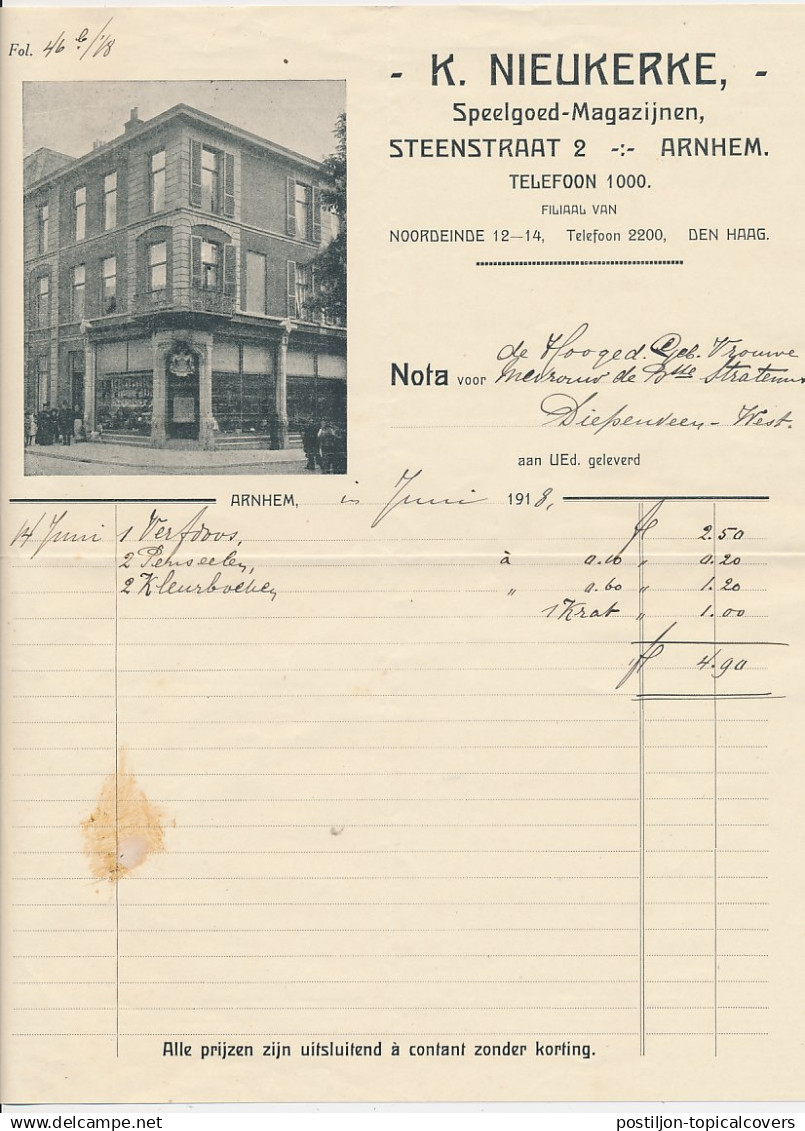 Fol. 46
- K. NIEUKERKE, -
Speelgoed-Magazijnen,
STEENSTRAAT 2 -:- ARNHEM.
TELEFOON 1000.
FILIAAL VAN
NOORDEINDE 12—14, Telefoon 2200, DEN HAAG.
de Hooged. Geb. Vrouwe
Nota voor Mevrouw de
Diepenveen - West.
aan UEd. geleverd
ARNHEM, in Juni 1918,
14 Juni 1 Verfdoos, fl 2.50
2 Penseelen, à 0.10 " 0.20
2 Kleurboeken " 0.60 " 1.20
1 Krat " 1.00
fl 4.90
Alle prijzen zijn uitsluitend à contant zonder korting.
postiljon-topicalcovers